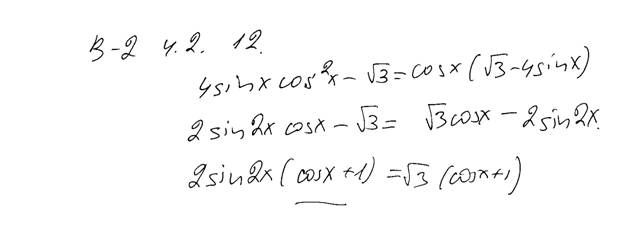 В-2 4.2. 12.
4sinx cos²x - √3 = cosx (√3 - 4sinx)
2sin2x cosx - √3 = √3cosx - 2sin2x.
2sin2x (cosx + 1) = √3 (cosx + 1)